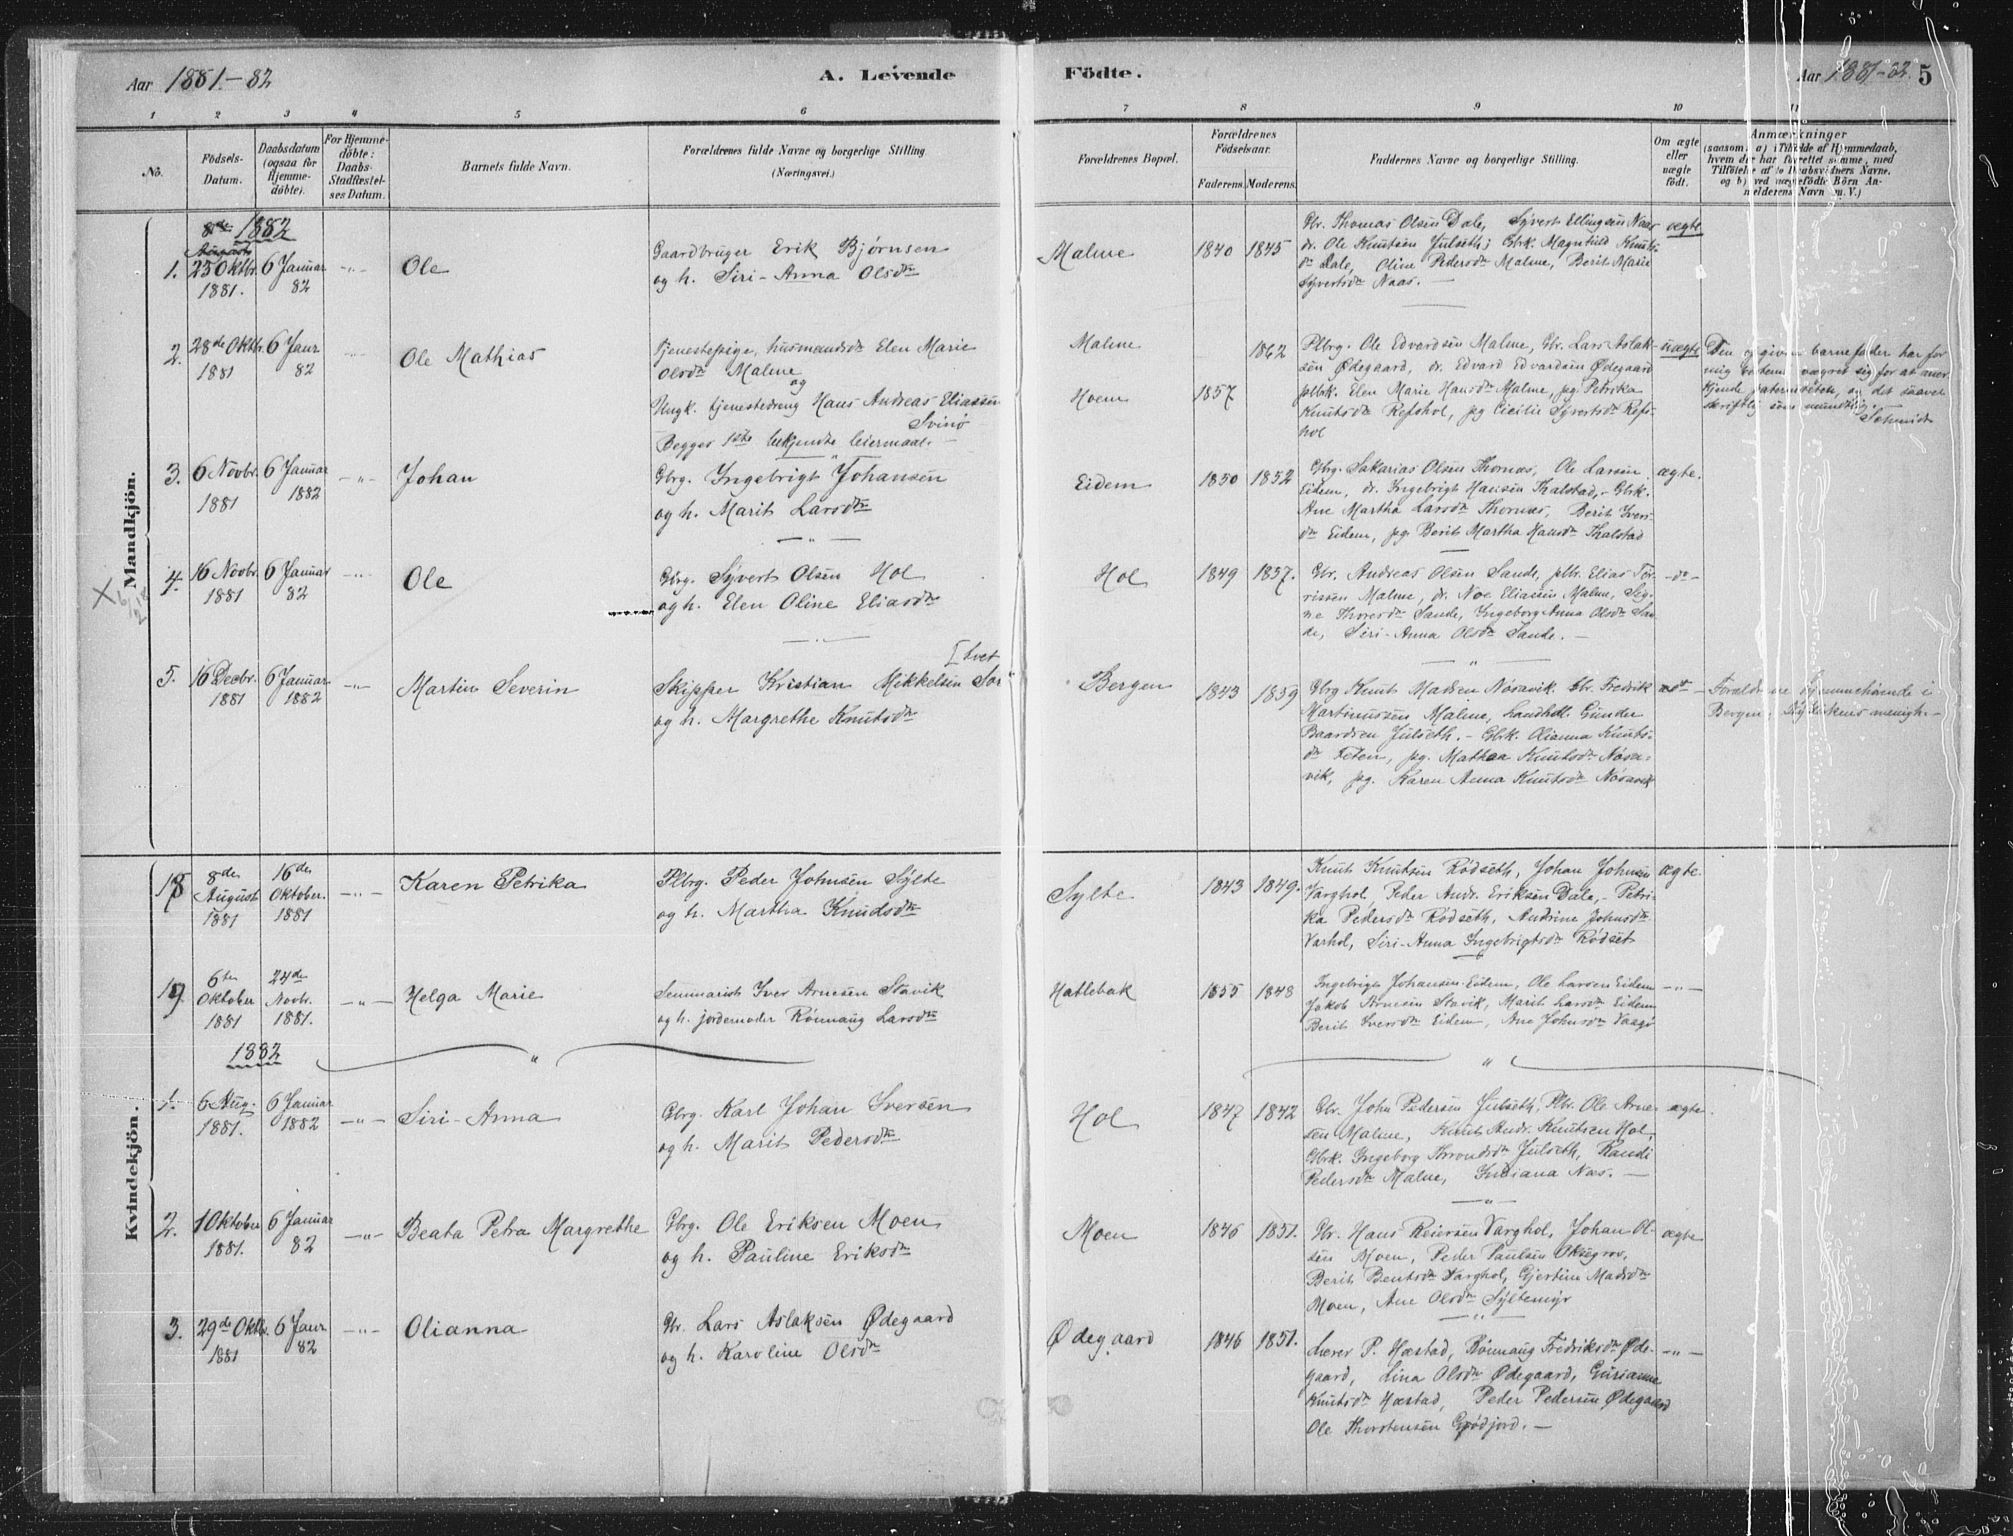 Aar 1881-82
A. Levende
Födte.
Aar 1881-82. 5
1 2 3 4 5 6 7 8 9 10 11
No.
Födsels-Datum.
Daabsdatum (ogsaa for Hjemmedöbte).
For Hjemmedöbte: Daabs-Stadfæstelses Datum.
Barnets fulde Navn.
Forældrenes fulde Navne og borgerlige Stilling (Næringsvei.)
Forældrenes Bopæl.
Forældrenes Födselsaar.
Faderens. Moderens.
Faddernes Navne og borgerlige Stilling.
Om ægte eller uægte födt.
Anmærkninger
(saasom: a) i Tilfælde af Hjemmedaab, hvem der har forrettet samme, med Tilföielse af to Daabsvidners Navne, og b) ved uægtefödte Börn Anmelderens Navn m. V.)
Mandkjön.
8de August
1882
1. 25 Oktbr. 1881. 6 Januar 82 -"- Ole
Gaardbruger Erik Bjørnsen
og h. Siri-Anna Olsdtr
Malme 1840 1845
Gbr. Thomas Olsen Dale, Syvert Ellingsen Naas
dr. Ole Knutsen Julseth; Gbrk. Magnhild Knuts-
dr Dale, Oline Pedersdr Malme, Berit Marie
Syvertsdr Naas. —
ægte
2. 28de Oktbr. 1881 6 Janr 82 Ole Mathias
Tjenestepige, husmandsdr Elen Marie
Olsdr Malme
og
Ungk. tjenestedreng Hans Andreas Eliassen
Svinø
Begges 1ste bekjendte leiermaal. —
Malme 1862
Hoem 1857
Plbrg. Ole Edvardsen Malme, Gbr. Lars Aslak-
sen Ødegaard, dr. Edvard Edvardsen Ødegaard
plbk. Elen Marie Hansdr Malme, pg Petrika
Knutsdr Refshol, pg Cicilie Syvertsdr Refs-
hol
uægte
Den opgivne barnefader har for
mig bestemt vægret sig for at aner-
kjende paterniteten, og det saavel
skriftlig som mundtlig.
Schmidt
3. 6 Novbr. 1881 6 Januar 1882 -"- Johan
Gbrg. Ingebrigt Johansen
og h. Marit Larsdtr
Eidem 1850 1852
Gbrg. Sakarias Olsen Thornæs, Ole Larsen
Eidem, dr. Ingebrigt Hansen Thalstad, - Gbrk.
Ane Martha Larsdr Thornæs, Berit Ivers-
dr Eidem, pg. Berit Martha Hansdr Thalstad
ægte.
4. 16 Novbr. 1881 6 Januar 82 -"- Ole
Gbrg. Syvert Olsen Hol
og h. Elen Oline Eliasdtr
Hol 1849 1857.
Gbr. Andreas Olsen Sande, plbr. Elias Tor-
rissen Malme, dr. Noe Eliassen Malme, Sig-
ne Thoresdr Sande, Ingeborg Anna Olsdr San-
de, Siri-Anna Olsdr Sande. —
-do-
5. 16 Decbr. 1881 6 Januar 1882 -"- Martin Severin
[tvet
Skipper Kristian Mikkelsen Sør
og h. Margrethe Knutsdtr
Bergen 1843 1859
Gbrg Knut Madsen Naasavik. Gbr. Fredrik
Martinussen Malme, Landhdl. Gunder
Baardsen Julseth. - Gbrk. Olianna Knuts-
dr Teten, pg. Mathea Knutsdr Naasa-
vik, pg. Karen Anna Knutsdr Naasavik
-do-
Forældrene hjemmehørende i
Bergen, Nykirkens menigh. -
Kvindekjön.
18 8de August 1881 16de Oktober. 1881 -"- Karen Petrika
Plbrg. Peder Johnsen Sylte
og h. Martha Knudsdtr
Sylte 1843 1849.
Knut Knutsen Rødseth, Johan Johnsen
Varghol, Peder Andr. Eriksen Dale, - Petri-
ka Pedersdr Rødseth, Andrine Johnsdr
Varhol, Siri-Anna Ingebrigtsdr Rødset
ægte.
19 6te Oktober 1881 24de Novbr. 1881. -"- Helga Marie
Seminarist Iver Arnesen Stavik
og h. jordemoder Rønnaug Larsdtr
Hatlebak 1855 1848
Ingebrigt Johansen Eidem, Ole Larsen Eidem
Jakob Arnesen Stavik, Marit Larsdr Eidem
Berit Iversdr Eidem, Ane Johnsdr Vaagø
-"-
1882
1. 6 Aug. 1881. 6 Januar 1882 -"- Siri-Anna
Gbrg. Karl Johan Iversen
og h. Marit Pedersdtr
Hol 1847 1842
Gbr. John Pedersen Julseth, Plbr. Ole Arne-
sen Malme, Knut Andr. Knutsen Hol,
Gbrk. Ingeborg Trondsdr Julseth, Randi
Pedersdr Malme, Indiana Nas. —
ægte.
2. 1 Oktober 1881. 6 Januar 82 -"- Beata Petra Margrethe
Gbrg. Ole Eriksen Moen
og h. Pauline Eriksdtr
Moen 1846 1851.
Gbr. Hans Reiersen Varghol, Johan Ol-
sen Moen, Peder Paulsen Oksgrov,
Berit Bentsdr Varghol, Gjertine Madsdr
Moen, Ane Olsdr Syltemyr
ægte
3. 29de Oktbr. 1881 6 Janr 82 -"- Olianna
Gbr. Lars Aslaksen Ødegaard
og h. Karoline Olsdtr
Ødegaard 1846 1851.
Lærer P. Hæstad, Rønnaug Fredriksdr Øde-
gaard, Lina Olsdr Ødegaard, Gurianne
Knutsdr Hæstad, Peder Pedersen Ødegaard
Ole Thorstensen Grødjord. —
-"-